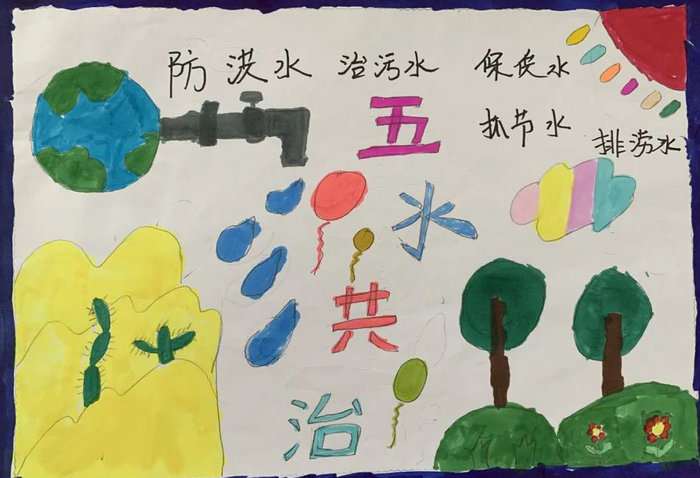 防洪水 治污水 保供水
抓节水 排涝水
五
水
共
治